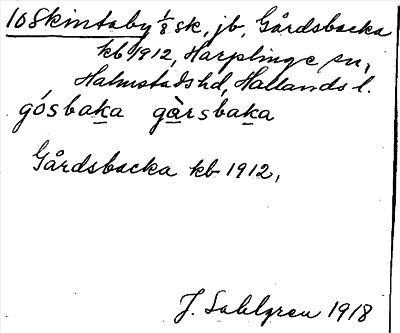 10 Skintaby 1/8 sk, jb, Gårdsbacka
kb 1912, Harplinge sn,
Halmstads hd, Hallands l.
gósbaka gàrsbaka
Gårdsbacka kb 1912,
J. Sahlgren 1918